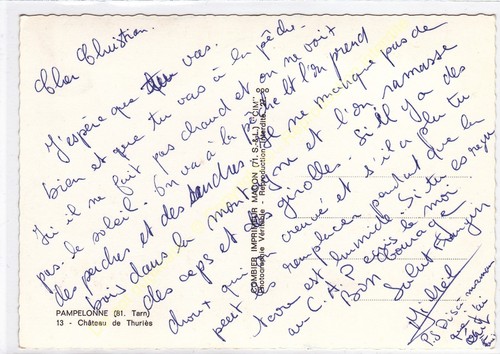 Cher Christian.
J'espère que tu vas
bien et que tu vas à la pêche
Ici il ne fait pas chaud et on ne voit
pas le soleil. On va à la pêche et l'on prend
des perches et des sandres. Il ne manque pas de
bois dans la montagne et l'on ramasse
des ceps et des girolles. S'il y a des
choux qui ont crevé et s'il a plu tu
peut les remplacer pendant que la
terre est humide. Si tu es reçu
au C.A.P écris le moi
Bon Courage
Salut Françoin
Michel
P.S Dis à maman
que j'ai
PAMPELONNE (81. Tarn)
13 - Château de Thuriès
COMBIER IMPRIMEUR MACON (71. S.-&-L.) "CIM"
Photographie Véritable - Reproduction Interdite